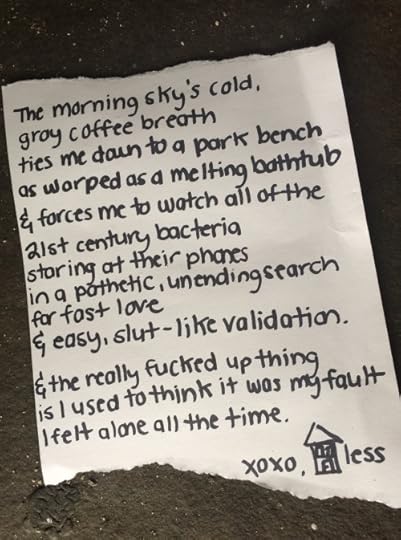 The morning sky's cold,
gray coffee breath
ties me down to a park bench
as warped as a melting bathtub
& forces me to watch all of the
21st century bacteria
staring at their phones
in a pathetic, unending search
for fast love
& easy, slut-like validation.
& the really fucked up thing
is I used to think it was my fault
I felt alone all the time.
xoxo, less